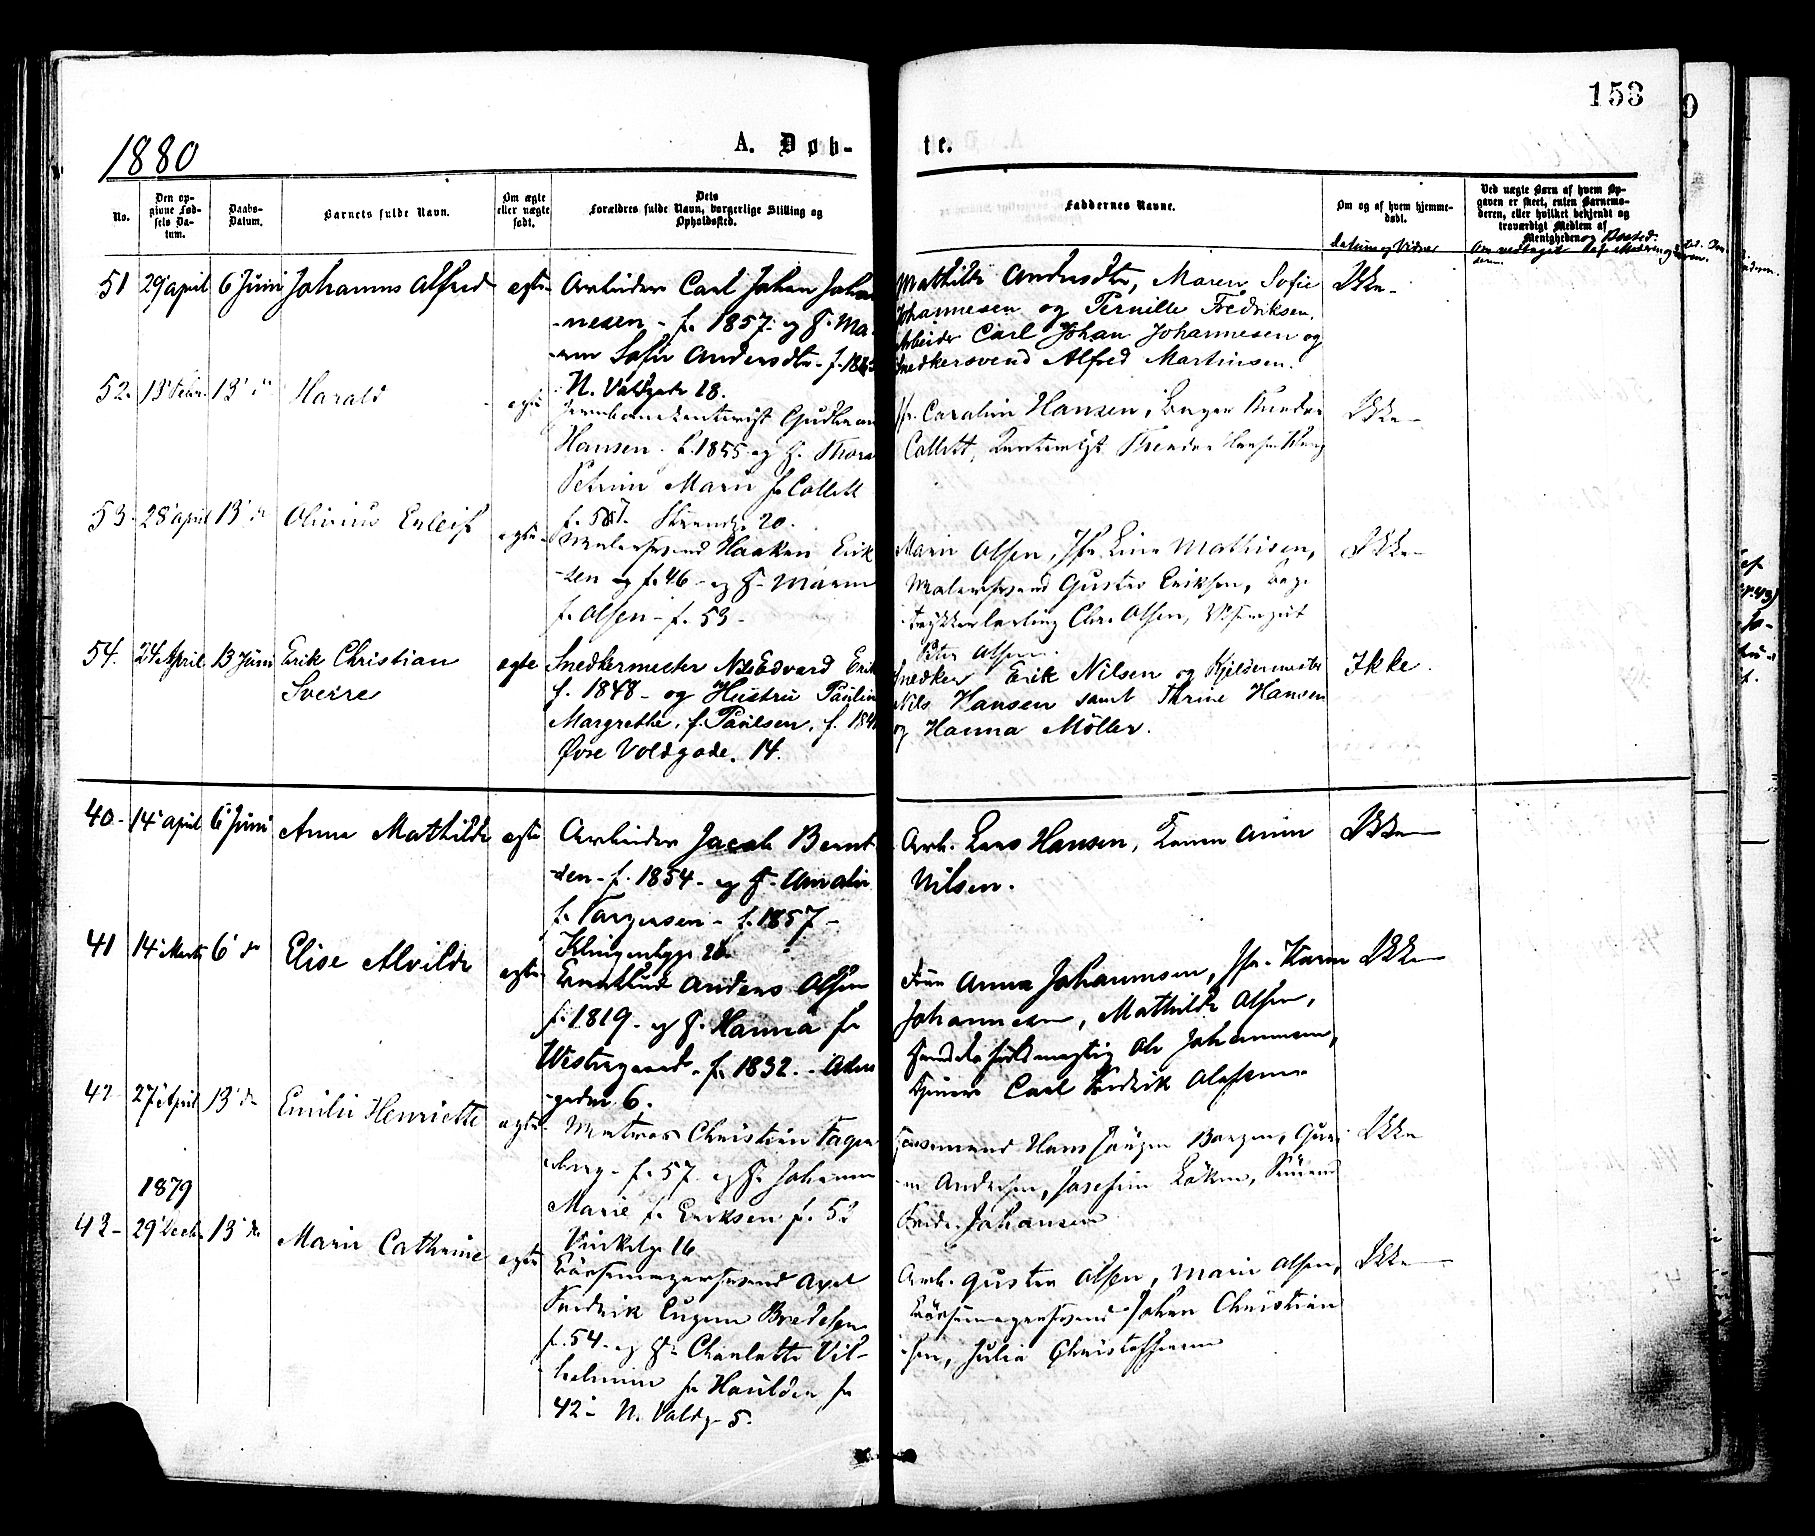 153
1880
A. Døb-
te.
No.
Den opgivne Fødsels Datum.
Daabs-Datum.
Barnets fulde Navn.
Om ægte eller uægte født.
Dets Forældres fulde Navn, borgerlige Stilling og Opholdssted.
Faddernes Navne.
Om og af hvem hjemmedøbt.
Datum og Vidner
Ved uægte Børn af hvem Opgaven er skeet, enten Barnemoderen, eller hvilket bekjendt og troværdigt Medlem af Menigheden
51 29' april 6 Juni Johannes Alfred egte
Arbeider Carl Johan Johan
nesen - f. 1857. og H. Ma-
ren Sofie Andersdtr - f.
N. Voldgade 18.
Mathilde Andersdtr, Maren Sofie
Johannesen og Pernille Fredriksen.
Arbeider Carl Johan Johannesen og
Snedkersvend Alfred Martinsen.
Ikke
52. 13' Febr. 13' do Harald egte
Jernbanekontorist Gudbran
Hansen - f. 1855 - og H. Thora
Petrine Marie f. Collett
Strandg. 20.
Jfr. Caroline Hansen,
Collett,
Ikke
53 28' april 13' do Olivius Enleif egte
Malersvend Haaken Erik
sen og f. 46 - og H. Maren
f. Olsen - f. 53 -
Marie Olsen, Jfr. Line Mathisen,
Malersvend Gustav Eriksen, Bog-
trykkerlærling Chr. Olsen, Visergut
Olsen.
Ikke
54. 24 April. 13 Juni Erik Christian
Sverre
egte
Snedkermester Nils Edvard Erik
f. 1848 - og Hustru Paulin
Margrethe. f. Paulsen. f.
Øvre Voldgade. 14.
Snedker Erik Nilsen og Kjeldermester
Nils Hansen samt Thrine Hansen
og Hanna Möller.
Ikke.
40 - 14' april 6' Juni Anna Mathilde egte
Arbeider Jacob Bernt
sen - f. 1854 - og H. Amalie
f. Torgersen - f. 1857 -
Arb. Lars Hansen, Karen Anne
Nilsen.
Ikke
41 14' Marts 6' do Elise Alvilde egte
Anders Olsen
f. 1819 - og H. Hanna f.
Westergaard - f. 1832. - Aker
gaden 6.
Frue Anna Johannesen, Jfr. Karen
Johannesen, Mathilde Olsen,
Handelsfuldmægtig Ole Johannesen,
Carl Fredrik Olafsen
Ikke
42 27' April 13' do Emilie Henriette egte
Matros Christian Fager
berg - f. 57 og H. Johanne
Marie f. Eriksen f. 52
Vinkelg. 16
Hans Jörgen
Andersen, Josefine Löken,
Johansen
Ikke
1879
43 - 29' Decbr. 13' do Marie Cathrine egte
Börsemagersvend Axel
Fredrik Eugen Bredesen
f. 54 - og H. Charlotte Vil-
helmine f. Haulden f.
42 - N. Voldg. 5.
Arb. Gustav Olsen, Marie Olsen,
Börsemagersvend Johan Christian
sen, Julia Christoffersen
Ikke